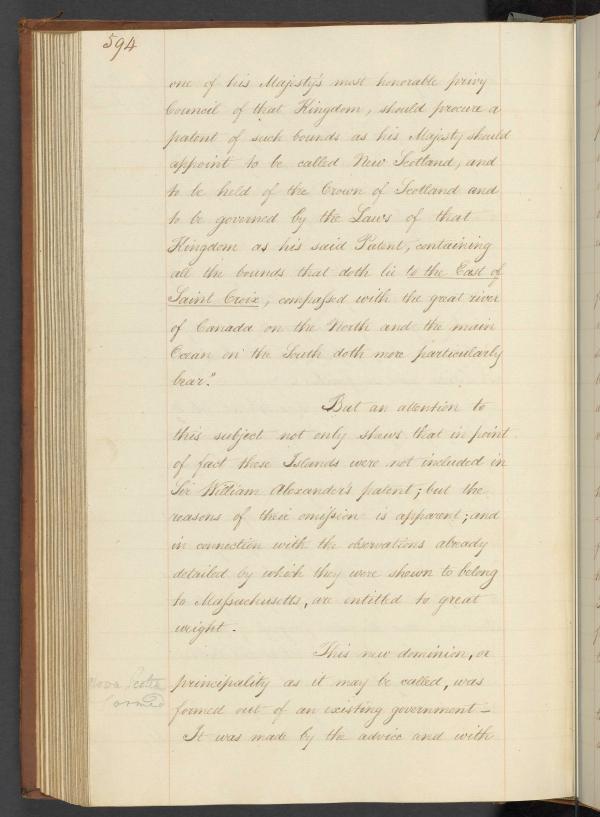 594
one of his Majesty's most honorable privy
Council of that Kingdom, should procure a
patent of such bounds as his Majesty should
appoint to be called New Scotland, and
to be held of the Crown of Scotland and
to be governed by the Laws of that
Kingdom as his said Patent, containing
all the bounds that doth lie to the East of
Saint Croix, compassed with the great river
of Canada on the North and the main
Ocean on the South doth more particularly
bear."
But an attention to
this subject not only shows that in point
of fact these Islands were not included in
Sir William Alexander's patent; but the
reasons of their omission is apparent; and
in connection with the observations already
detailed by which they were shown to belong
to Massachusetts, are entitled to great
weight.
This new dominion, or
Nova Scotia
formed
principality as it may be called, was
formed out of an existing government—
It was made by the advice and with